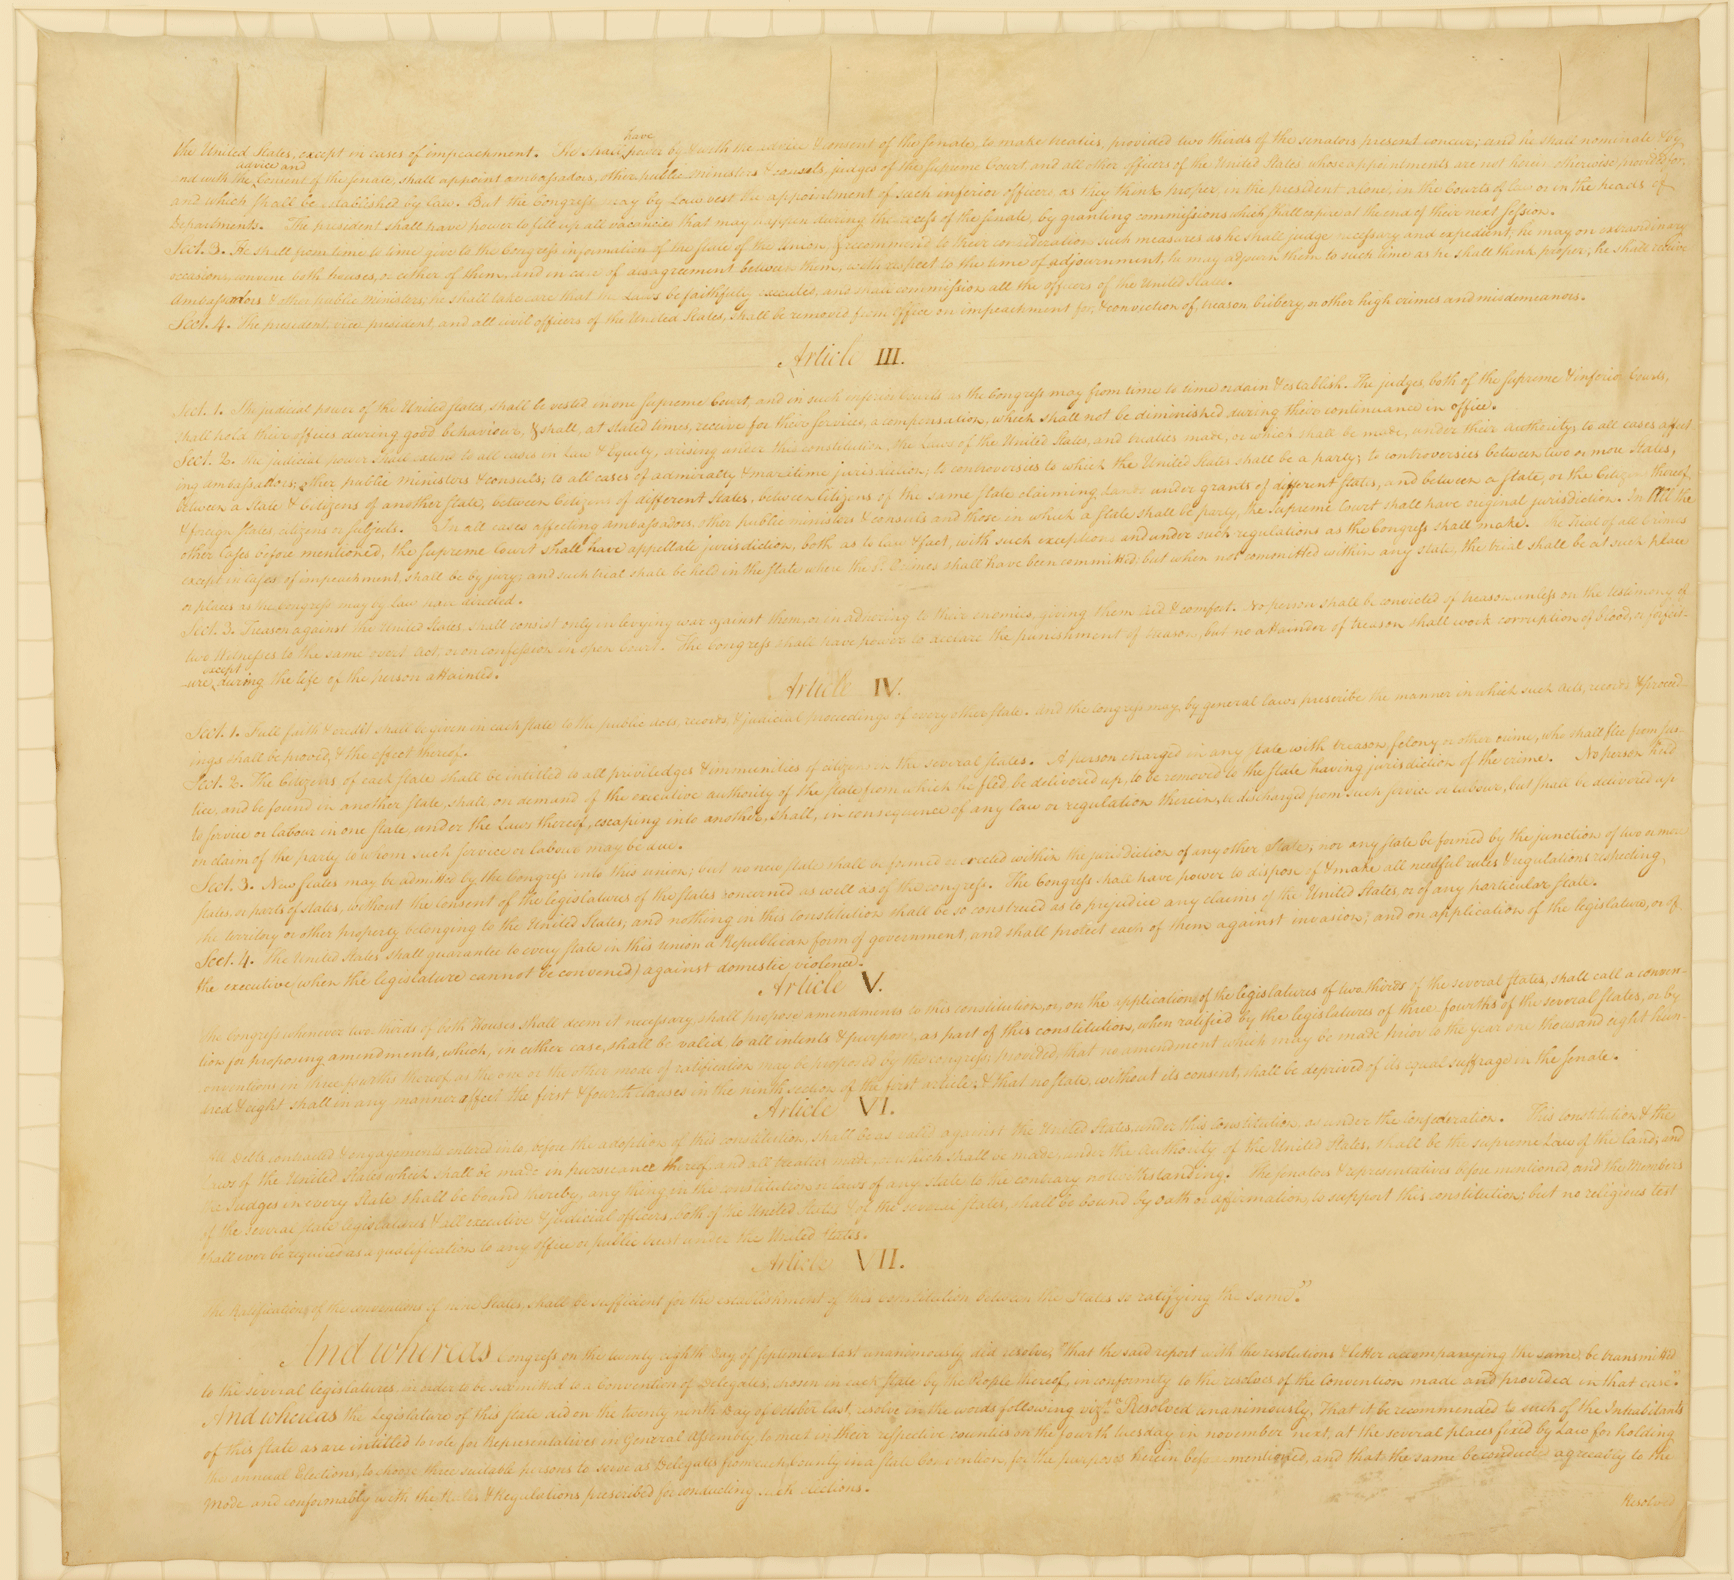 have
the United States, except in cases of impeachment. He shall power by & with the advice & consent of the senate, to make treaties, provided two thirds of the senators present concur; and he shall nominate & by
advice and
and with the Consent of the senate, shall appoint ambassadors, other public ministers & consuls, judges of the supreme Court and all other officers of the United States whose appointments are not herein otherwise provided for,
and which shall be established by law. But the congress may by Law vest the appointment of such inferior officers as they think proper, in the president alone, in the Courts of law or in the heads of
Departments. The president shall have power to fill up all vacancies that may happen during the recess of the senate, by granting commissions which shall expire at the end of their next session.
Sect. 3. He shall from time to time give to the Congress information of the state of the Union, & recommend to their consideration such measures as he shall judge necessary and expedient; he may on extraordinary
occasions convene both houses, or either of them, and in case of disagreement between them, with respect to the time of adjournment, he may adjourn them to such time as he shall think proper; he shall receive
Ambassadors & other public ministers; he shall take care that the Laws be faithfully executed, and shall commission all the officers of the United States.
Sect. 4. The president, vice president, and all civil officers of the United States, shall be removed from Office on impeachment for, & conviction of, treason, bribery, or other high crimes and misdemeanors.
Article III.
Sect. 1. The judicial power of the United States, shall be vested in one supreme Court, and in such inferior Courts as the Congress may from time to time ordain & establish. The judges, both of the supreme & inferior Courts,
shall hold their offices during good behaviour, & shall, at stated times, receive for their services, a compensation, which shall not be diminished during their continuance in office.
Sect. 2. The judicial power shall extend to all cases in law & Equity, arising under this constitution, the laws of the United States, and treaties made, or which shall be made, under their authority; to all cases affect-
ing ambassadors, other public ministers & consuls; to all cases of admiralty & maritime jurisdiction; to controversies to which the United States shall be a party; to controversies between two or more States,
between a State & Citizens of another State, between Citizens of different States, between Citizens of the same State claiming Lands under grants of different States, and between a State, or the Citizens thereof,
& foreign States citizens or subjects. In all cases affecting ambassadors, other public ministers & consuls and those in which a State shall be party, the supreme Court shall have original jurisdiction. In all the
other Cases before mentioned, the supreme Court shall have appellate jurisdiction, both as to law & fact, with such exceptions and under such regulations as the Congress shall make. The trial of all Crimes
except in cases of impeachment, shall be by jury; and such trial shall be held in the State where the sd. Crimes shall have been committed; but when not committed within any state, the trial shall be at such place
or places as the Congress may by law have directed.
Sect. 3. Treason against the United States, shall consist only in levying war against them, or in adhering to their enemies, giving them aid & comfort. No person shall be convicted of treason unless on the testimony of
two Witnesses to the same overt act, or on confession in open Court. The Congress shall have power to declare the punishment of treason, but no attainder of treason shall work corruption of blood, or forfeit-
except
ure, during the life of the person attainted.
Article IV.
Sect. 1. Full faith & credit shall be given in each state to the public acts, records, & judicial proceedings of every other state. And the congress may by general laws prescribe the manner in which such acts, records & proceed-
ings shall be proved, & the effect thereof.
Sect. 2. The Citizens of each state shall be intitled to all priviledges & immunities of citizens in the several states. A person charged in any state with treason, felony or other crime, who shall flee from jus-
tice, and be found in another state, shall on demand of the executive authority of the state from which he fled be delivered up, to be removed to the state having jurisdiction of the crime. No person held
to service or labour in one state, under the Laws thereof, escaping into another, shall, in consequence of any law or regulation therein, be discharged from such service or labour, but shall be delivered up
on claim of the party to whom such service or labour may be due.
Sect. 3. New States may be admitted by the Congress into this union; but no new state shall be formed or erected within the jurisdiction of any other State; nor any state be formed by the junction of two or more
states, or parts of states, without the Consent of the legislatures of the states concerned as well as of the congress. The Congress shall have power to dispose of & make all needful rules & regulations respecting
the territory or other property belonging to the United States; and nothing in this Constitution shall be so construed as to prejudice any claims of the United States, or of any particular state.
Sect. 4. The United States shall guarantee to every state in this union a Republican form of government, and shall protect each of them against invasion; and on application of the legislature, or of
the executive (when the legislature cannot be convened) against domestic violence.
Article V.
The Congress whenever two thirds of both Houses shall deem it necessary, shall propose amendments to this constitution, or, on the application of the legislatures of two thirds of the several states, shall call a conven-
tion for proposing amendments, which, in either case, shall be valid to all intents & purposes, as part of this constitution, when ratified by the legislatures of three fourths of the several states, or by
conventions in three fourths thereof, as the one or the other mode of ratification may be proposed by the congress; provided, that no amendment which may be made prior to the year one thousand eight hun-
dred & eight shall in any manner affect the first & fourth clauses in the ninth section of the first article; & that no state, without its consent, shall be deprived of its equal suffrage in the senate.
Article VI.
All Debts contracted & engagements entered into, before the adoption of this constitution, shall be as valid against the United States under this Constitution, as under the confederation. This constitution & the
Laws of the United States which shall be made in pursuance thereof; and all treaties made, or which shall be made, under the Authority of the United States, shall be the supreme Law of the land; and
the Judges in every State shall be bound thereby, any thing in the constitution or laws of any state to the contrary notwithstanding. The senators & representatives before mentioned, and the Members
of the several state legislatures & all executive & judicial officers, both of the United States & of the several states, shall be bound by oath or affirmation, to support this constitution; but no religious test
shall ever be required as a qualification to any office or public trust under the United States.
Article VII.
The Ratification of the conventions of nine States, shall be sufficient for the establishment of this constitution between the States so ratifying the same."
And whereas Congress on the twenty eighth Day of september last unanimously did resolve "That the said report with the resolutions & letter accompanying the same, be transmitted
to the several legislatures in order to be submitted to a Convention of Delegates, chosen in each state by the People thereof, in conformity to the resolves of the Convention made and provided in that case".
And whereas the Legislature of this state did on the twenty ninth Day of October last, resolve in the words following vizt. "Resolved unanimously, That it be recommended to such of the Inhabitants
of this state as are intitled to vote for Representatives in General assembly, to meet in their respective counties on the fourth tuesday in november next, at the several places fixed by Law for holding
the annual Elections, to choose three suitable persons to serve as Delegates from each county in a state Convention, for the purposes herein before mentioned, and that the same be conducted agreeably to the
Mode and conformably with the Rules & Regulations prescribed for conducting such elections.
Resolved